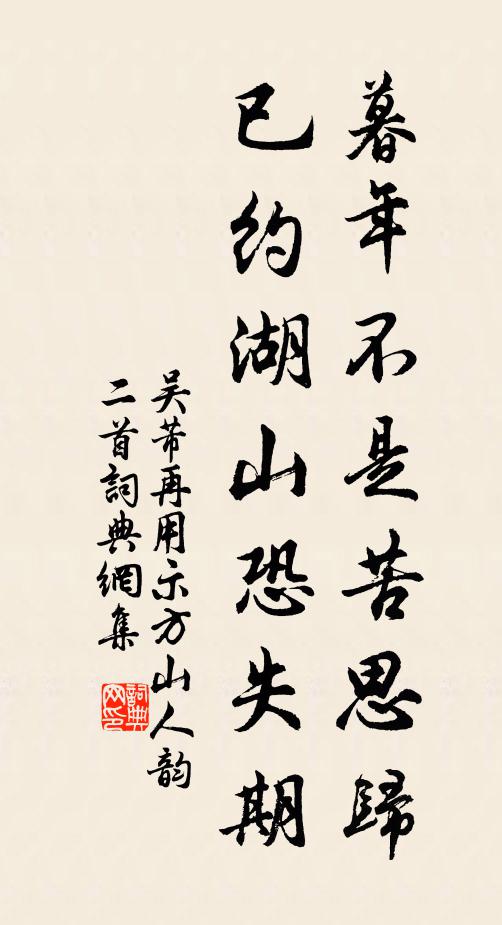 暮年不是苦思歸
已約湖山恐失期
吴芾再用示方山人韵
二首詞典網集
詞典
网印